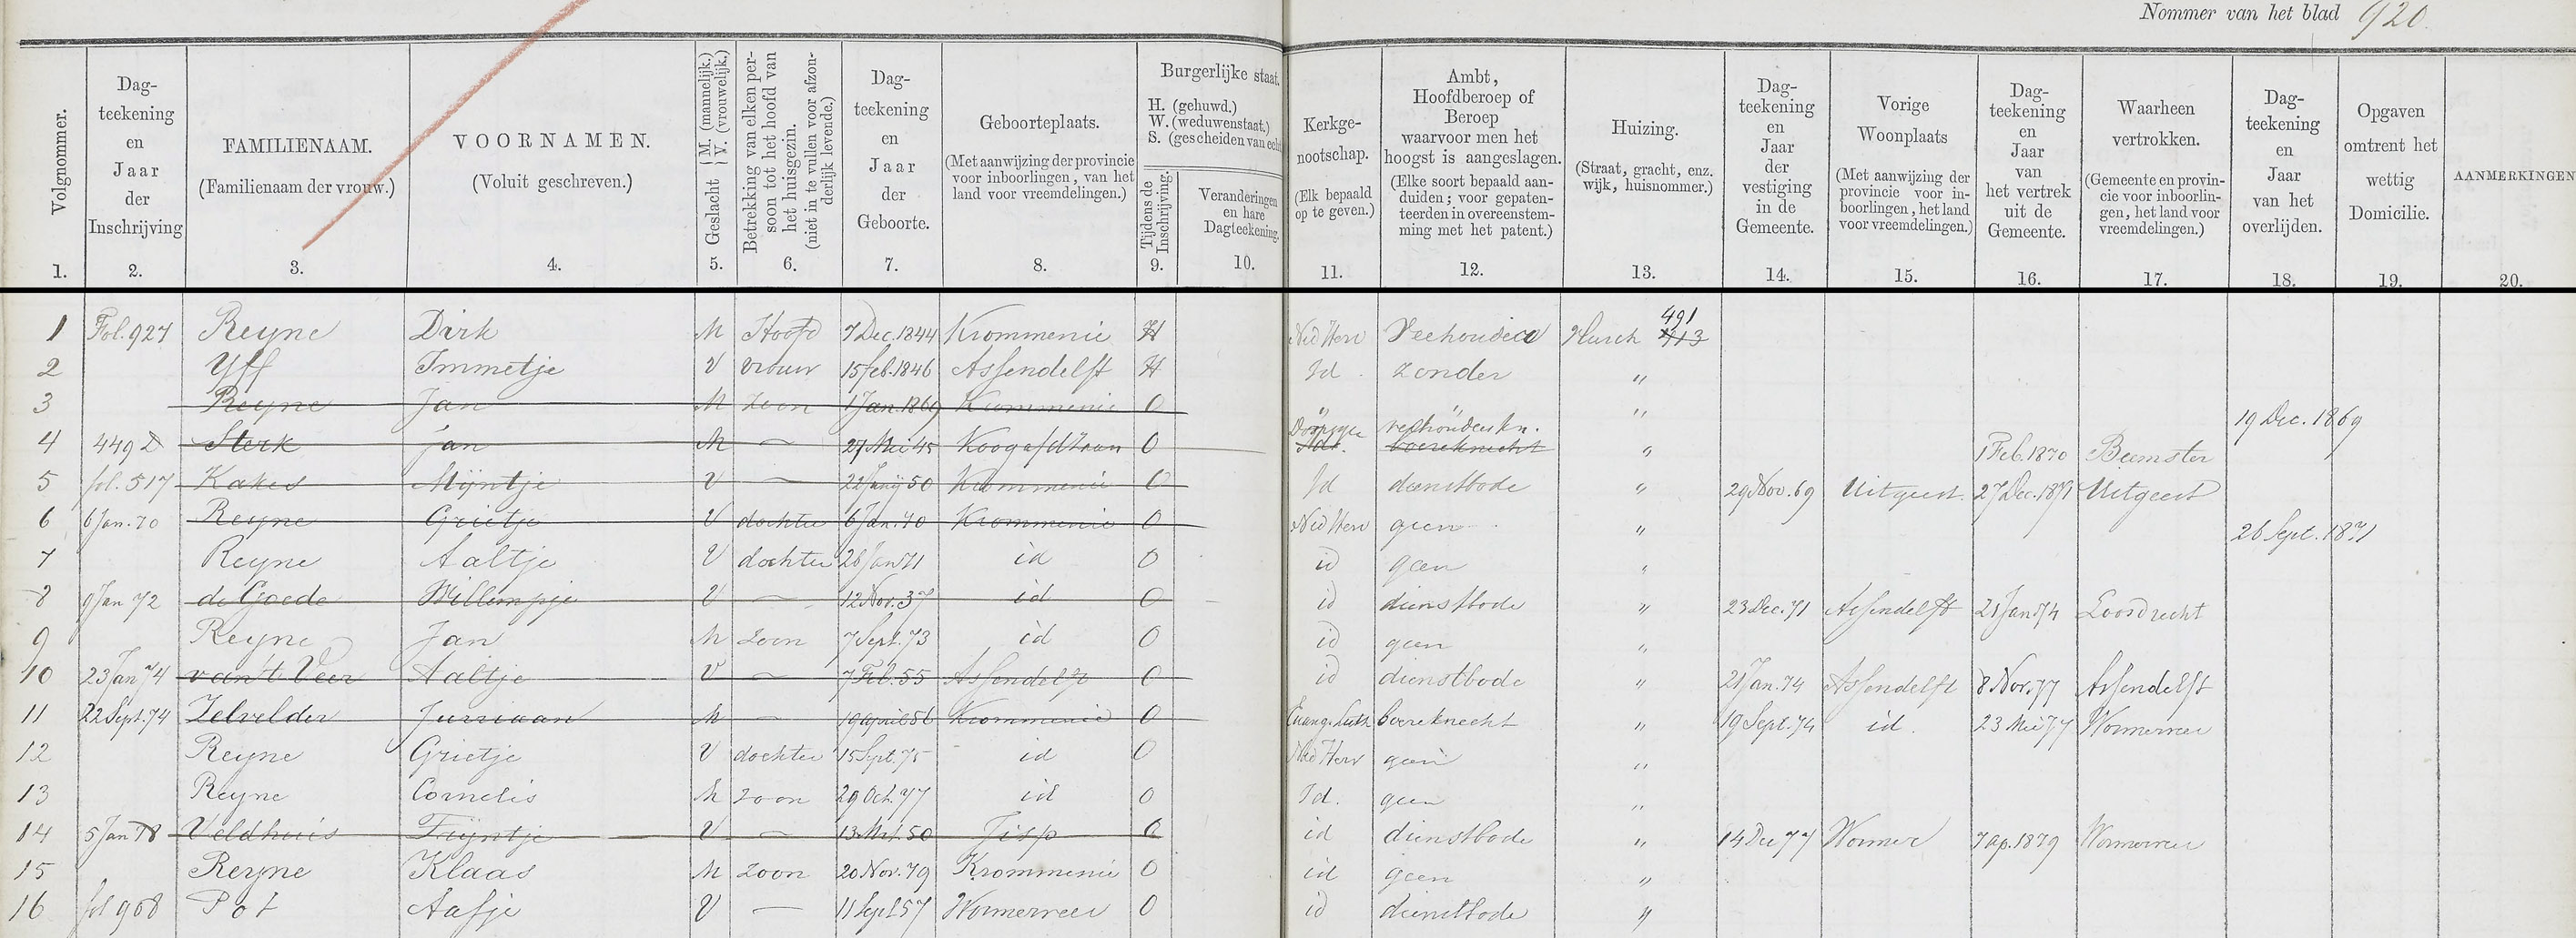 Nommer van het blad 920.
Volgnommer.
1.
Dag-
teekening
en
Jaar
der
Inschrijving
2.
FAMILIENAAM.
(Familienaam der vrouw.)
3.
VOORNAMEN.
(Voluit geschreven.)
4.
Geslacht { M. (mannelijk.) V. (vrouwelijk.)
5.
Betrekking van elken per-
soon tot het hoofd van
het huisgezin.
(niet in te vullen voor afzon-
derlijk levende.)
6.
Dag-
teekening
en
Jaar
der
Geboorte.
7.
Geboorteplaats.
(Met aanwijzing der provincie
voor inboorlingen, van het
land voor vreemdelingen.)
8.
Burgerlijke staat.
H. (gehuwd.)
W. (weduwenstaat.)
S. (gescheiden van echt
Tijdens de
Inschrijving.
9.
Veranderingen
en hare
Dagteekening.
10.
Kerkge-
nootschap.
(Elk bepaald
op te geven.)
11.
Ambt,
Hoofdberoep of
Beroep
waarvoor men het
hoogst is aangeslagen.
(Elke soort bepaald aan-
duiden; voor gepaten-
teerden in overeenstem-
ming met het patent.)
12.
Huizing.
(Straat, gracht, enz.
wijk, huisnommer.)
13.
Dag-
teekening
en
Jaar
der
vestiging
in de
Gemeente.
14.
Vorige
Woonplaats
(Met aanwijzing der
provincie voor in-
boorlingen, het land
voor vreemdelingen.)
15.
Dag-
teekening
en
Jaar
van
het vertrek
uit de
Gemeente.
16.
Waarheen
vertrokken.
(Gemeente en provin-
cie voor inboorlin-
gen, het land voor
vreemdelingen.)
17.
Dag-
teekening
en
Jaar
van het
overlijden.
18.
Opgaven
omtrent het
wettig
Domicilie.
19.
AANMERKINGEN
20.
1 Fol. 927 Reyne Dirk M Hoofd 7 Dec. 1844 Krommenie H Ned Herv Veehouder 491
2 Yff Immetje V vrouw 15 feb. 1846 Assendelft H Id. zonder "
3 Reyne Jan M zoon 1 Jan. 1869 Krommenie O " " " 19 Dec. 1869
4 449 Sterk Jan M — 27 Mei 45 Koog a/d Zaan O Doopsgez veehouderskn. boereknecht " 1 Feb. 1870 Beemster
5 fol. 517 Kakes Mijntje V — 22 Junij 50 Krommenie O Id dienstbode " 29 Nov. 69 Uitgeest 27 Dec. 1871 Uitgeest
6 6 Jan. 70 Reyne Grietje V dochter 6 Jan. 70 Krommenie O Ned Herv geen " 26 Sept. 1871
7 Reyne Aaltje V dochter 28 Jan 71 id O id geen "
8 9 Jan 72 de Goede Willempje V — 12 Nov. 37 id O id dienstbode " 23 Dec. 71 Assendelft 21 Jan 74 Loosdrecht
9 Reyne Jan M zoon 7 Sept. 73 id O id geen "
10 23 Jan 74 van't Veer Aaltje V — 7 Feb. 55 Assendelft O id dienstbode " 21 Jan. 74 Assendelft 8 Nov. 77 Assendelft
11 22 Sept. 74 Zelvelder Jurriaan M — 19 april 56 Krommenie O Evang. Luth boereknecht " 19 Sept. 74 id. 23 Mei 77 Wormerveer
12 Reyne Grietje V dochter 15 Sept. 75 id O Ned Herv geen "
13 Reyne Cornelis M zoon 29 Oct. 77 id O Id. geen "
14 5 Jan 78 Veldhuis Trijntje V — 13 Mrt. 50 Jisp O id dienstbode " 14 Dec 77 Wormer 7 Ap. 1879 Wormerveer
15 Reyne Klaas M zoon 20 Nov. 79 Krommenie O id geen "
16 fol 908 Pot Aafje V — 11 Sept 57 Wormerveer O id dienstbode "